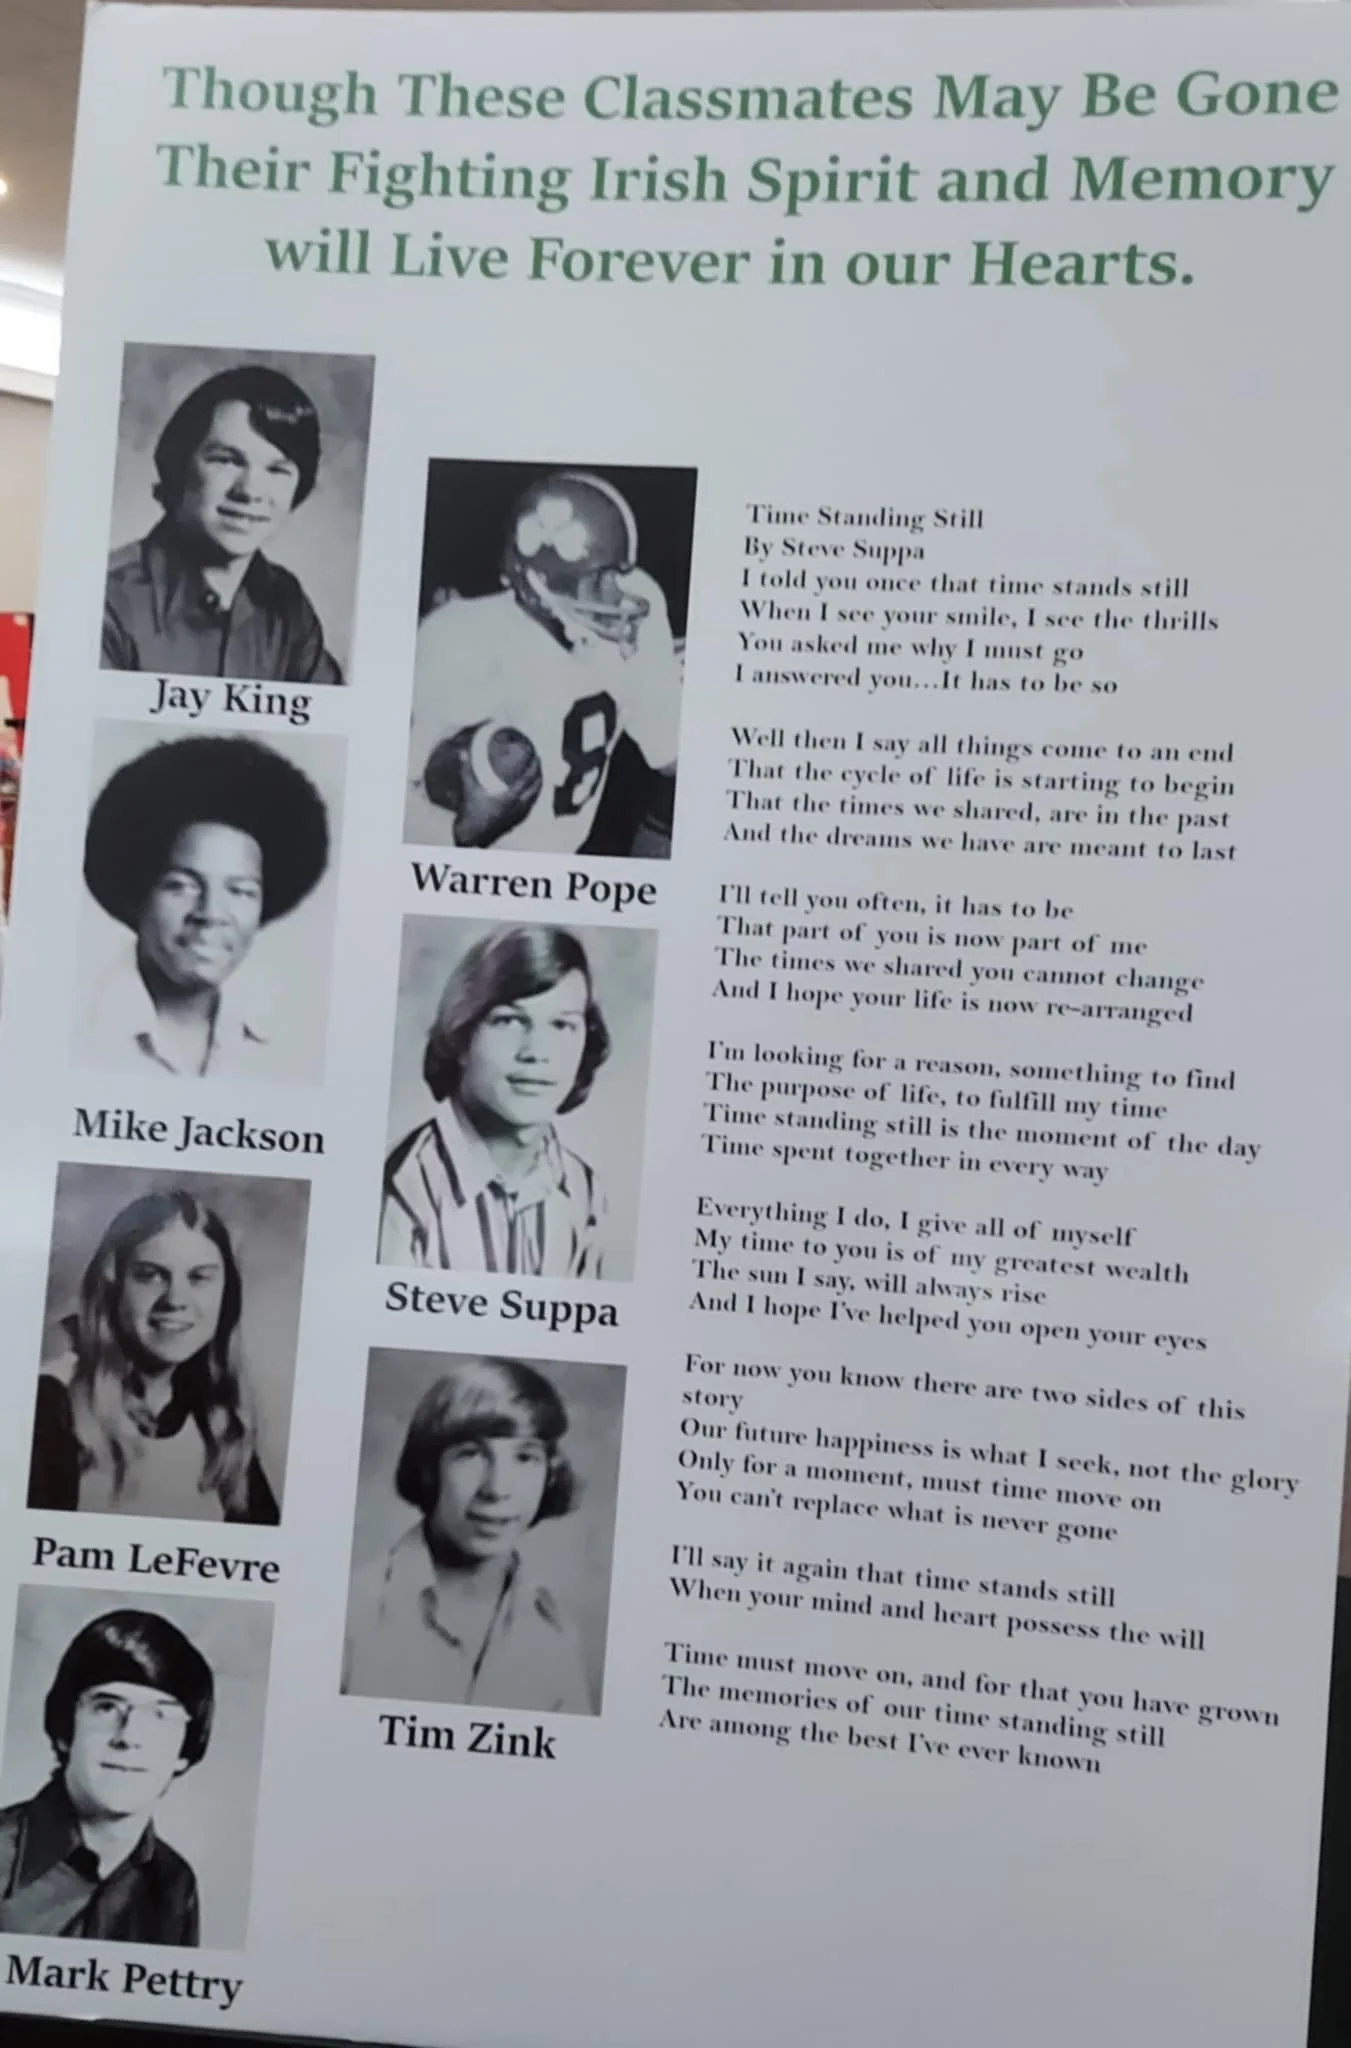 Though These Classmates May Be Gone
Their Fighting Irish Spirit and Memory
will Live Forever in our Hearts.
Jay King
Mike Jackson
Pam LeFevre
Mark Pettry
Warren Pope
8
Steve Suppa
Tim Zink
Time Standing Still
By Steve Suppa
I told you once that time stands still
When I see your smile, I see the thrills
You asked me why I must go
I answered you...It has to be so
Well then I say all things come to an end
That the cycle of life is starting to begin
That the times we shared, are in the past
And the dreams we have are meant to last
I'll tell you often, it has to be
That part of you is now part of me
The times we shared you cannot change
And I hope your life is now re-arranged
I'm looking for a reason, something to find
The purpose of life, to fulfill my time
Time standing still is the moment of the day
Time spent together in every way
Everything I do, I give all of myself
My time to you is of my greatest wealth
The sun I say, will always rise
And I hope I've helped you open your eyes
For now you know there are two sides of this
story
Our future happiness is what I seek, not the glory
Only for a moment, must time move on
You can't replace what is never gone
I'll say it again that time stands still
When your mind and heart possess the will
Time must move on, and for that you have grown
The memories of our time standing still
Are among the best I've ever known